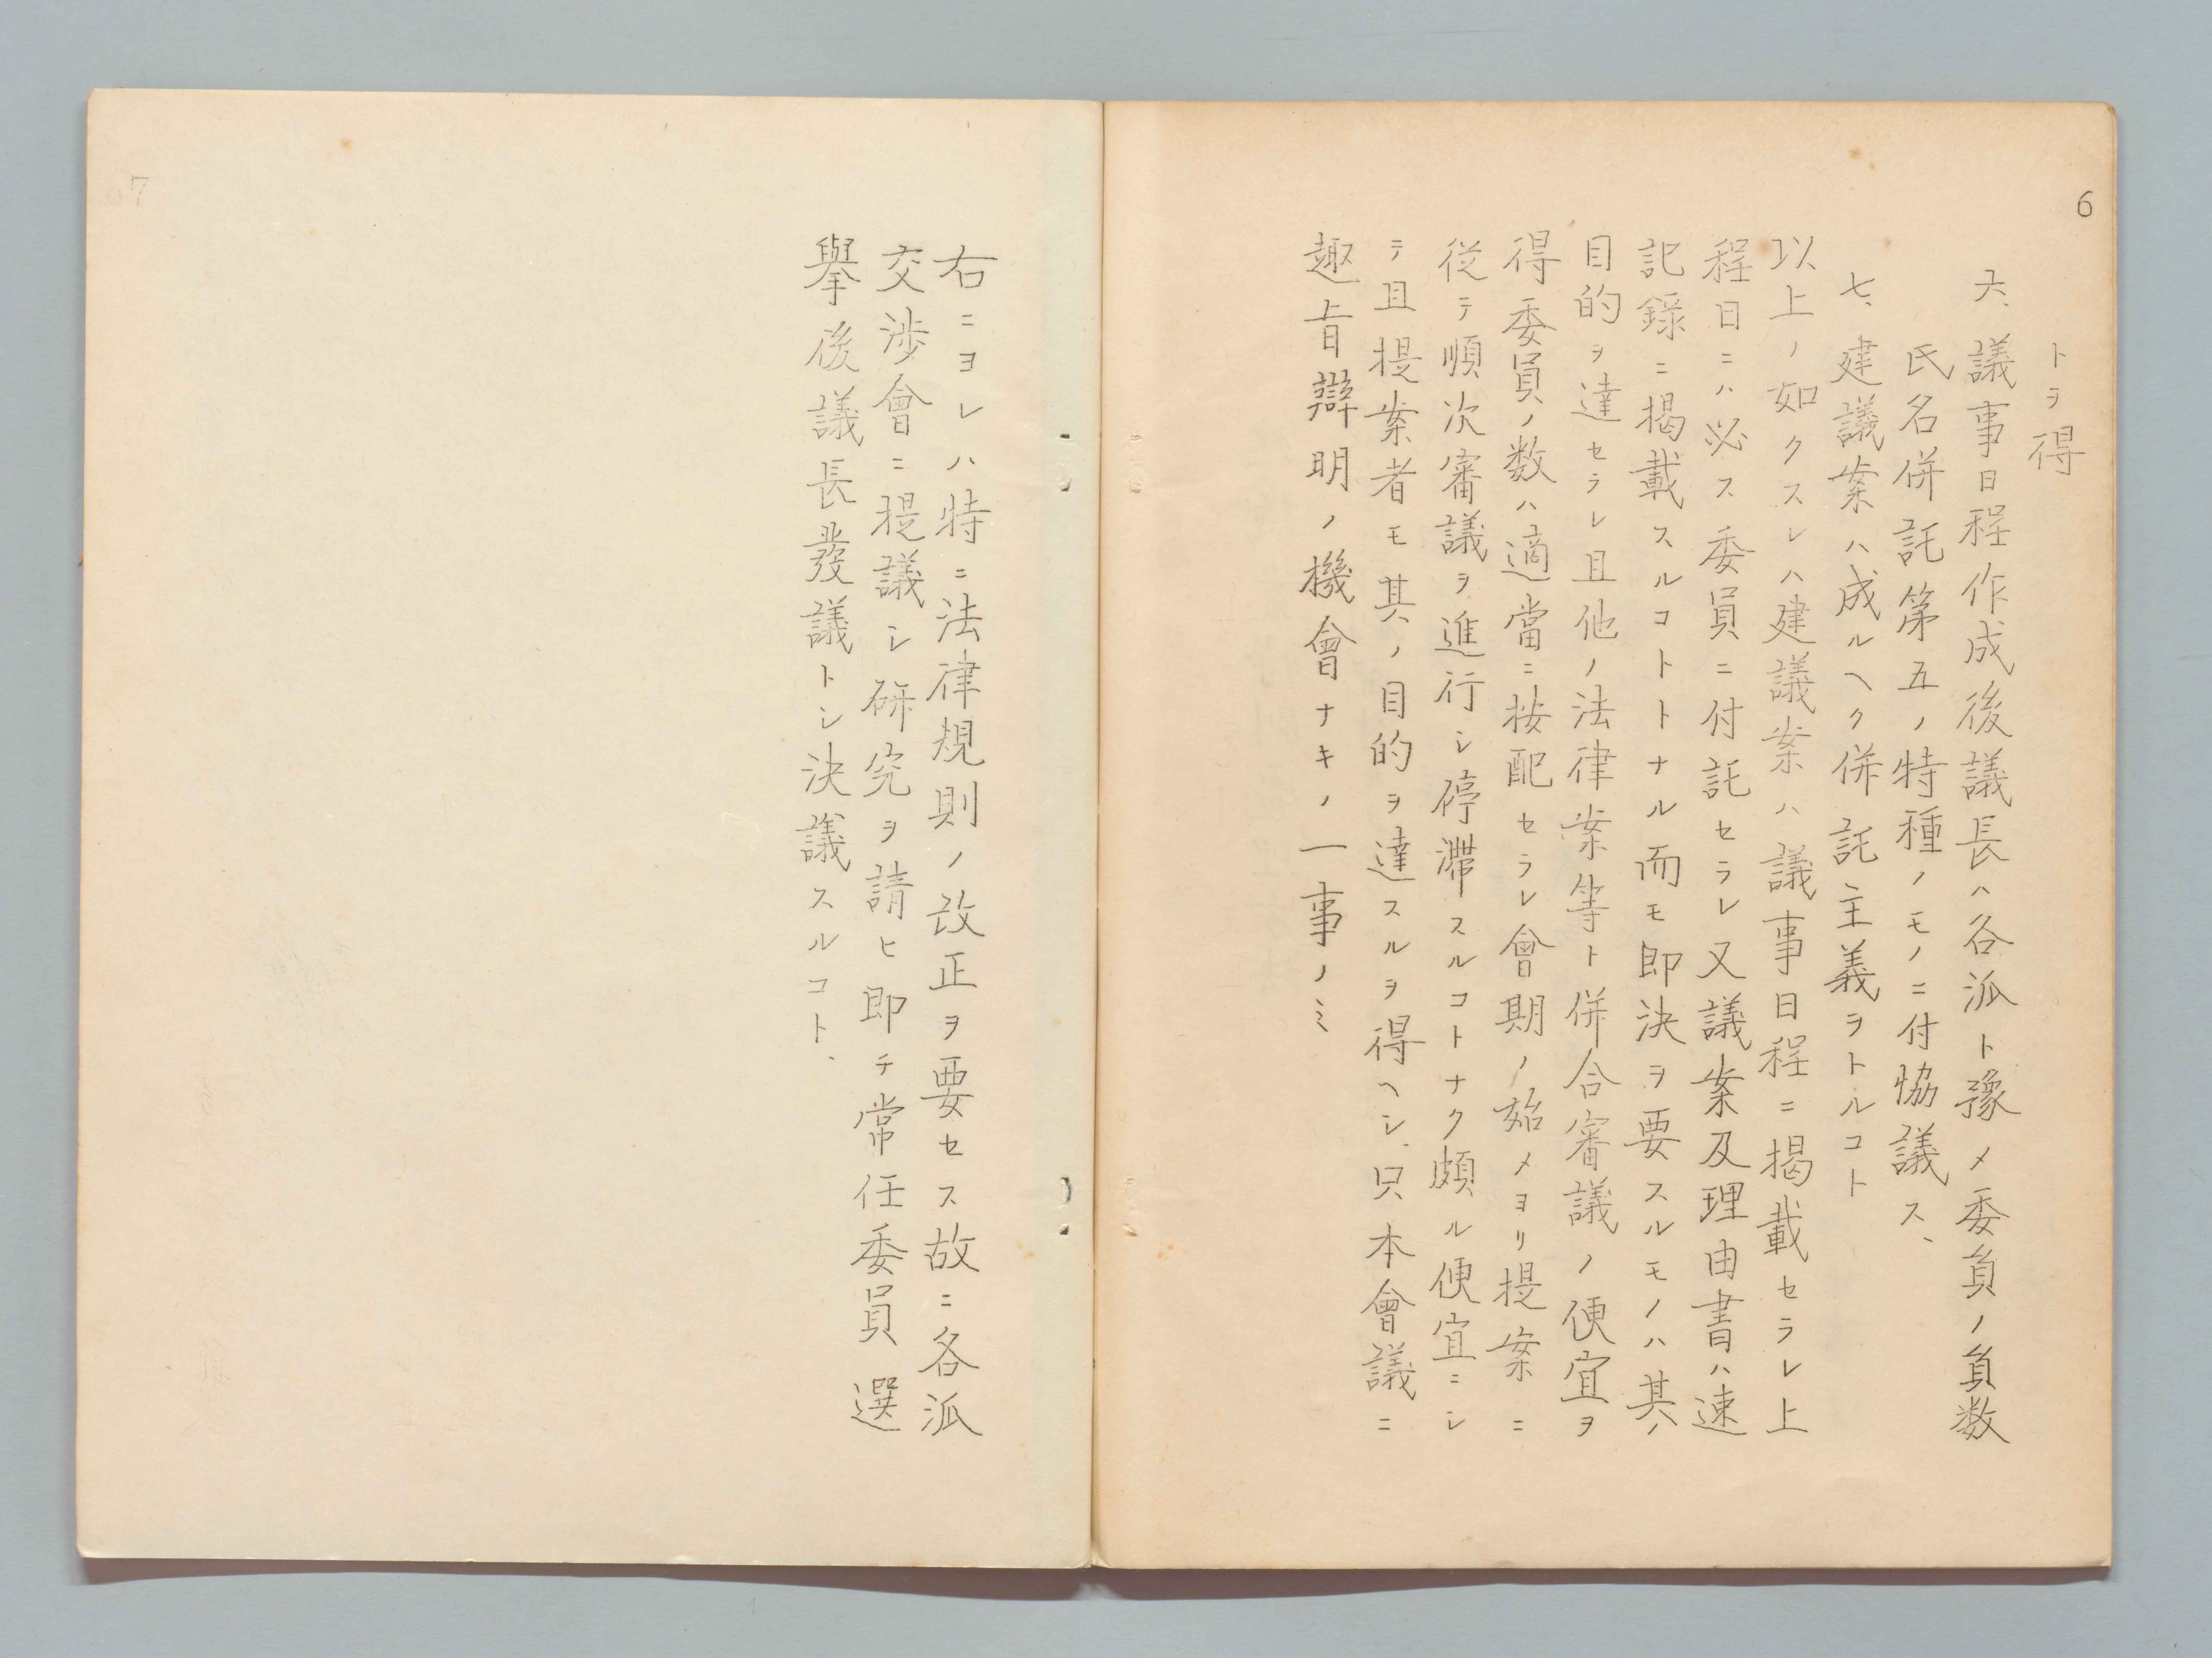 6
トヲ得
六、議事日程作成後議長ハ各派ト豫メ委員ノ員数
氏名併託第五ノ特種ノモノニ付協議ス、
七、建議案ハ成ルヘク併託主義ヲトルコト
以上ノ如クスレハ建議案ハ議事日程ニ掲載セラレ上
程日ニハ必ス委員ニ付託セラレ又議案及理由書ハ速
記録ニ掲載スルコトトナル而モ即決ヲ要スルモノハ其ノ
目的ヲ達セラレ且他ノ法律案等ト併合審議ノ便宜ヲ
得委員ノ数ハ適當ニ按配セラレ會期ノ始メヨリ提案ニ
従テ順次審議ヲ進行シ停滞スルコトナク頗ル便宜ニシ
テ且提案者モ其ノ目的ヲ達スルヲ得ヘシ、只本會議ニ
趣旨辯明ノ機會ナキノ一事ノミ
7
右ニヨレハ特ニ法律規則ノ改正ヲ要セス故ニ各派
交渉會ニ提議シ研究ヲ請ヒ即チ常任委員選
擧後議長發議トシ決議スルコト、